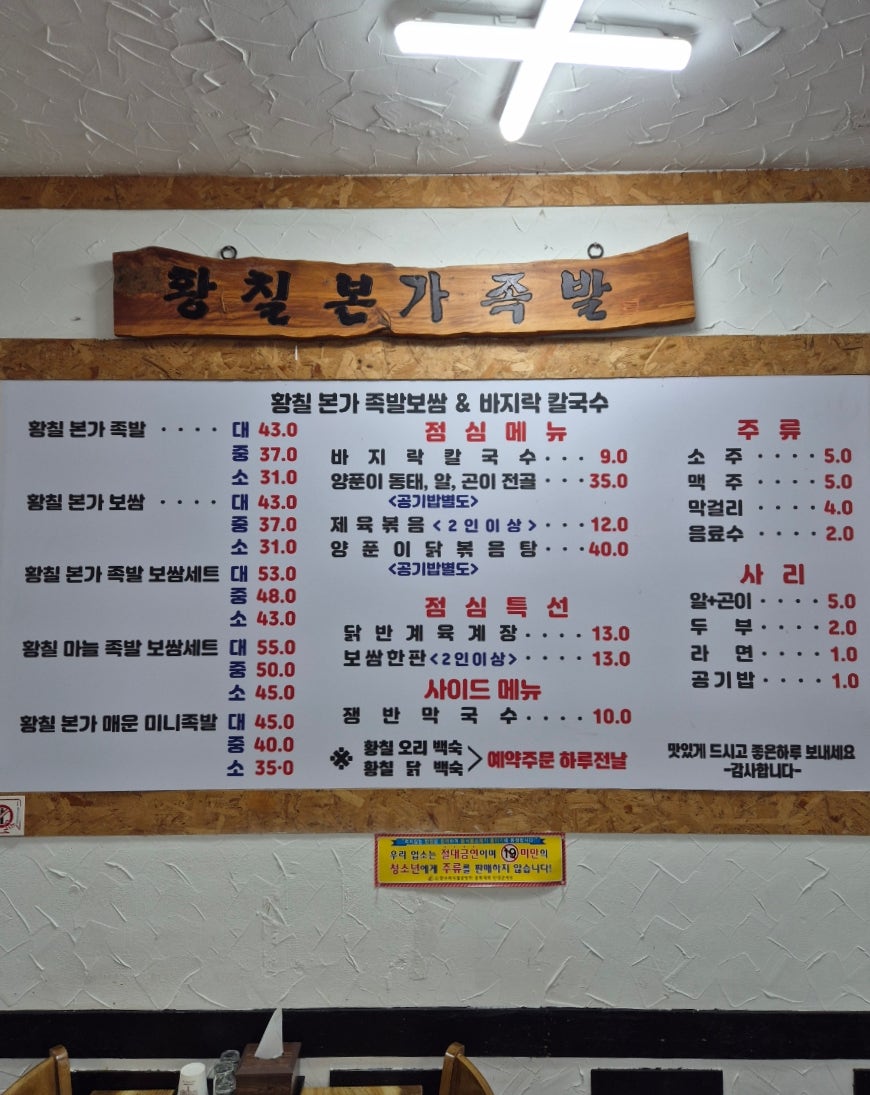 황칠본가족발
황칠 본가 족발보쌈 & 바지락 칼국수
황칠 본가 족발 ···· 대 43.0
중 37.0
소 31.0
황칠 본가 보쌈 ···· 대 43.0
중 37.0
소 31.0
황칠 본가 족발 보쌈세트 대 53.0
중 48.0
소 43.0
황칠 마늘 족발 보쌈세트 대 55.0
중 50.0
소 45.0
황칠 본가 매운 미니족발 대 45.0
중 40.0
소 35·0
점심메뉴
바지락칼국수··· 9.0
양푼이 동태, 알, 곤이 전골 ··· 35.0
<공기밥별도>
제육볶음<2인이상>··· 12.0
양푼이닭볶음탕··· 40.0
<공기밥별도>
점심특선
닭반계육계장···· 13.0
보쌈한판<2인이상>···· 13.0
사이드 메뉴
쟁반막국수···· 10.0
※ 황칠 오리 백숙
황칠 닭 백숙 > 예약주문 하루전날
주류
소주 ···· 5.0
맥주 ···· 5.0
막걸리 ···· 4.0
음료수 ···· 2.0
사리
알+곤이 ···· 5.0
두부 ···· 2.0
라면 ···· 1.0
공기밥 ···· 1.0
맛있게 드시고 좋은하루 보내세요
-감사합니다-
우리 업소는 절대금연이며 19미만의
청소년에게 주류를 판매하지 않습니다!